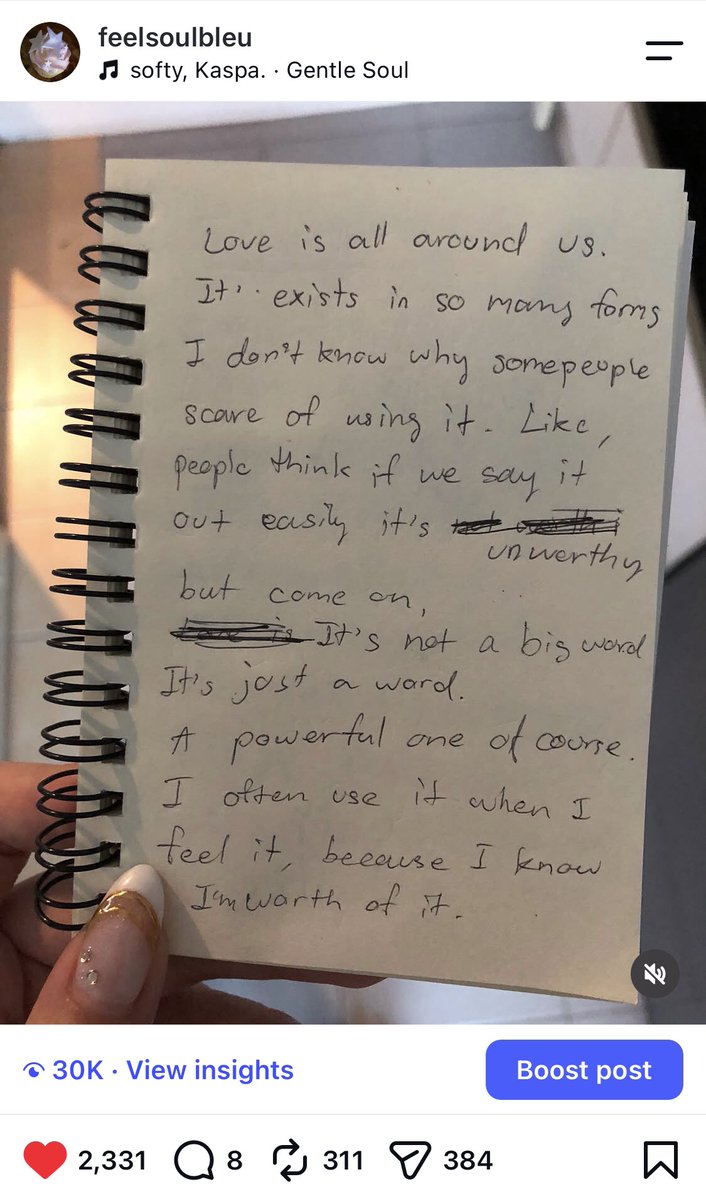 feelsoulbleu
softy, Kaspa. · Gentle Soul
Love is all around us.
It' exists in so many forms
I don't know why somepeople
scare of using it. Like,
people think if we say it
out easily it's
unworthy
but come on,
It's not a big word
It's just a word.
A powerful one of course.
I often use it when I
feel it, because I know
I'm warth of it.
30K · View insights
Boost post
2,331 8 311 384